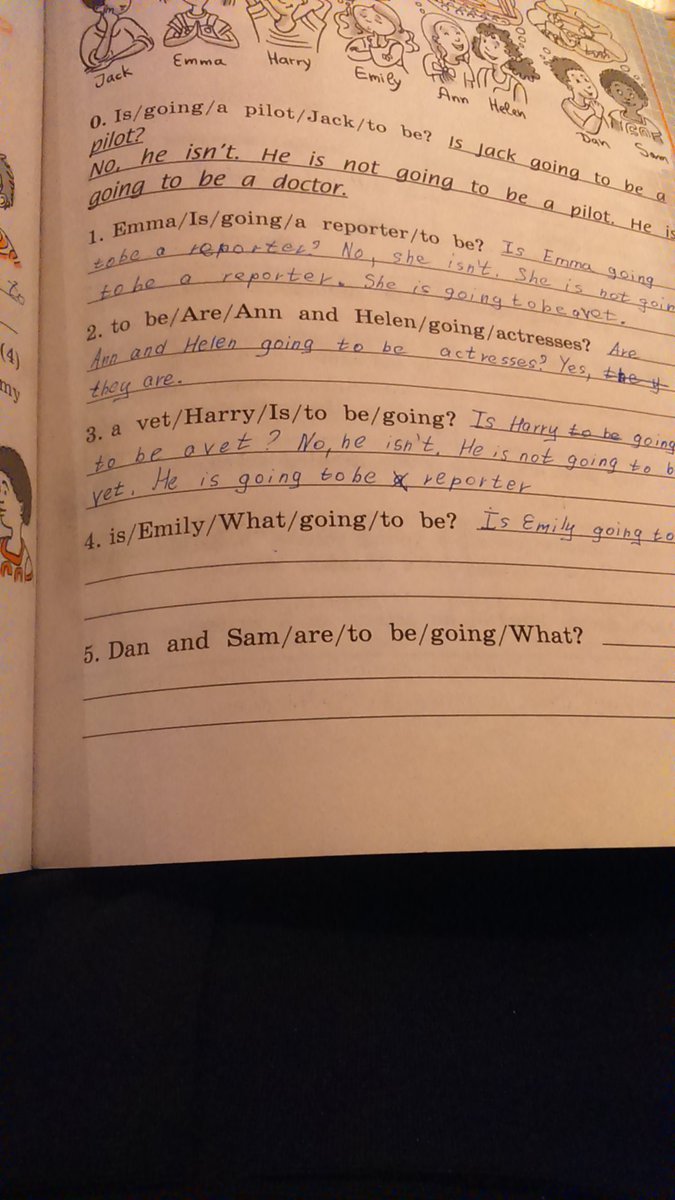 Jack
Emma
Harry
Emily
Ann Helen
Dan
Sam
0. Is/going/a pilot/Jack/to be? Is Jack going to be a
pilot?
No, he isn't. He is not going to be a pilot. He is
going to be a doctor.
1. Emma/Is/going/a reporter/to be? Is Emma going
to be a reporter? No, she isn't. She is not goin
to be a reporter. She is going to be a vet.
2. to be/Are/Ann and Helen/going/actresses? Are
Ann and Helen going to be actresses? Yes, they
they are.
3. a vet/Harry/Is/to be/going? Is Harry to be going
to be a vet? No, he isn't. He is not going to b
vet. He is going to be reporter
4. is/Emily/What/going/to be? Is Emily going to
5. Dan and Sam/are/to be/going/What?
(4)
my